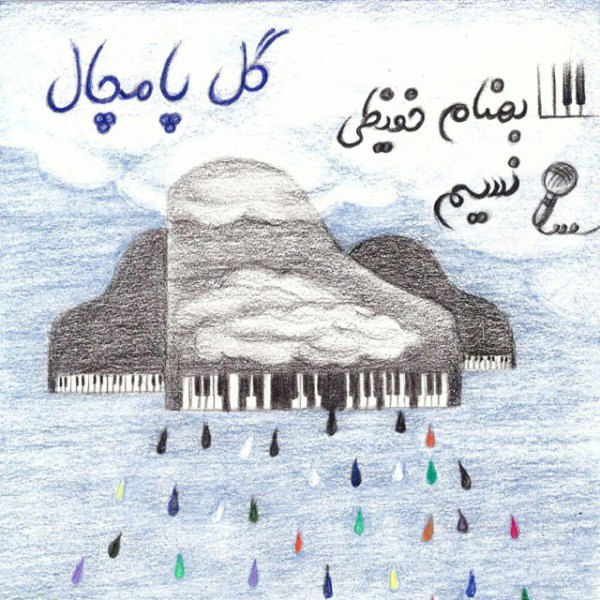 گل پامچال
بهنام خدنظری
نسیم